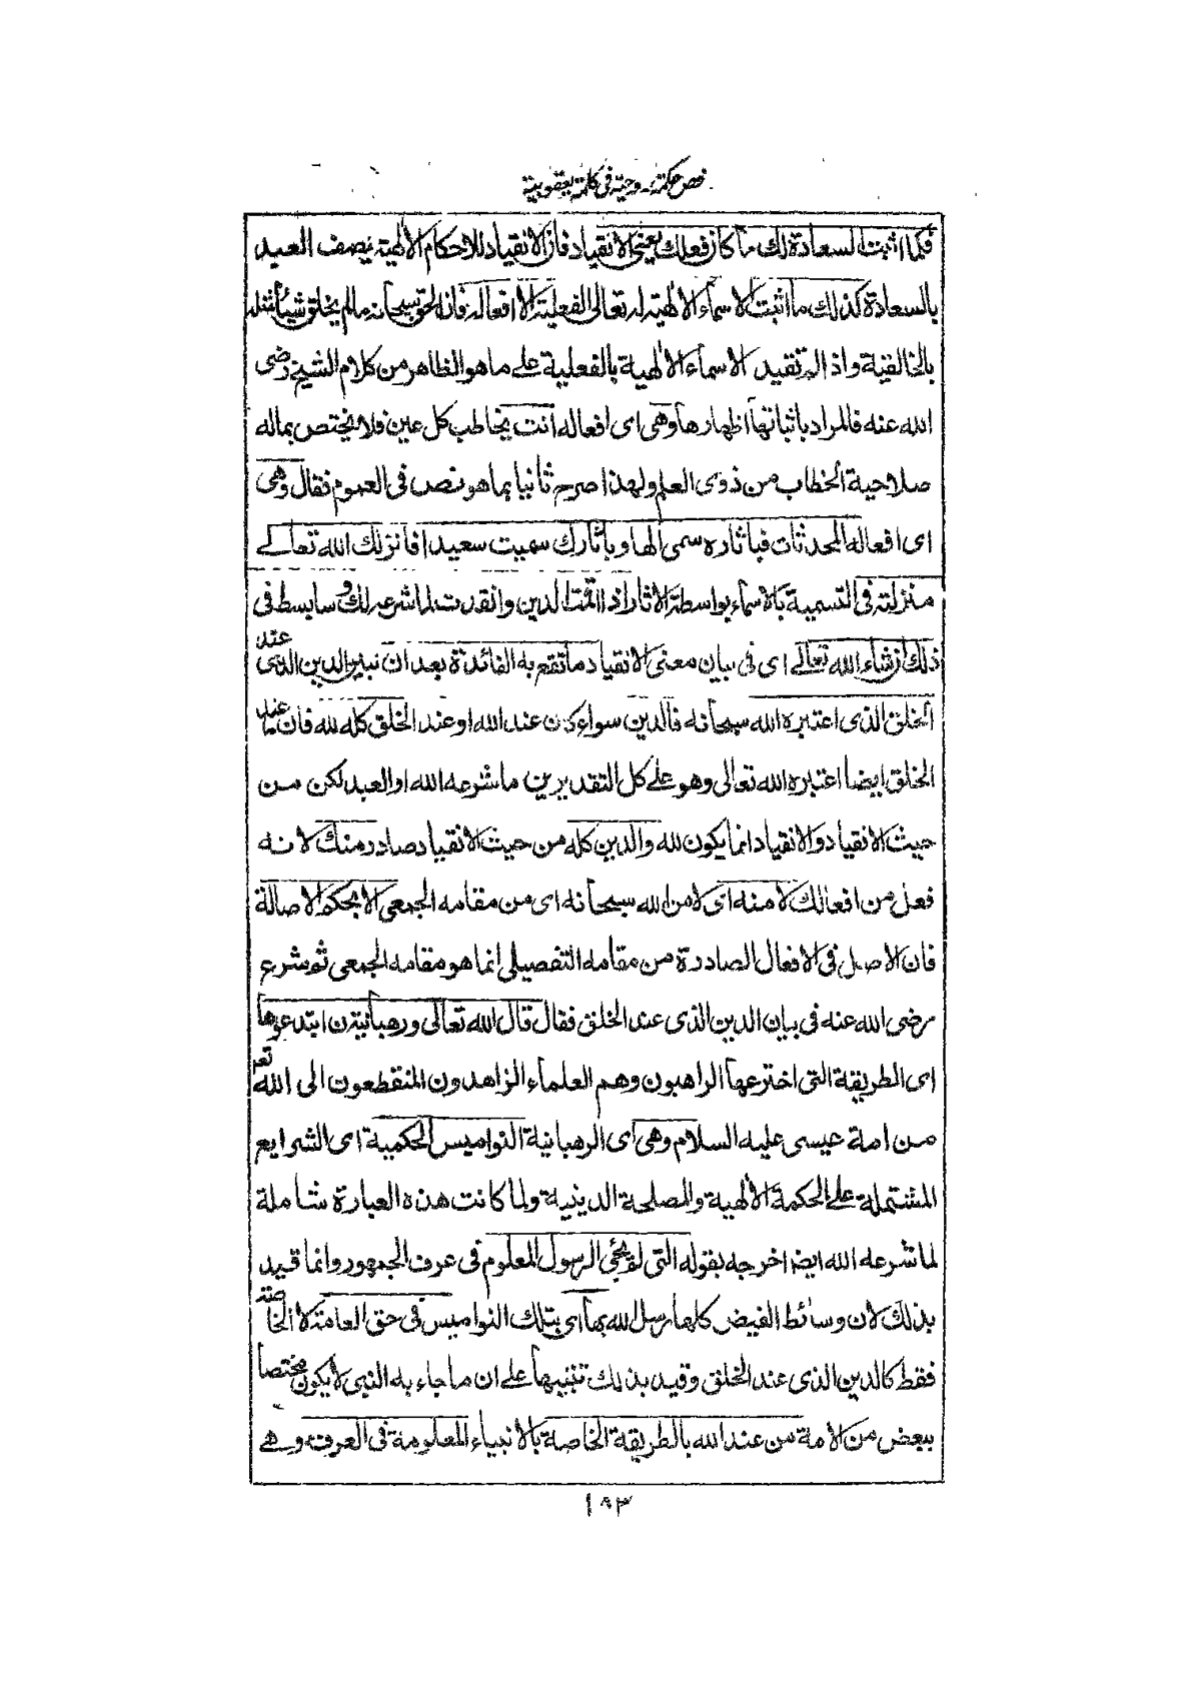 فص حكمة روحية في كلمة يعقوبية
فكما اثبت السعادة لك ما كان فعلك يعنى الانقياد فان الانقياد للاحكام الالهية يصف العبد
بالسعادة كذلك ما اثبت الاسماء الالهية له تعالى الفعلية الا افعاله فان الحق سبحانه مالم يخلق شيئا
بالخالقية واذا لم تقيد الاسماء الالهية بالفعلية على ما هو الظاهر من كلام الشيخ رضى
الله عنه فالمراد باثباتها اظهارها وهى اى افعاله انت يخاطب كل عين فلا يختص بماله
صلاحية الخطاب من ذوى العلم ولهذا صرح ثانيا بما هو نص فى العموم فقال وهى
اى افعاله المحدثات فبآثاره سمى الها وبآثارك سميت سعيدا فانزلك الله تعالى
منزلته فى التسمية بالاسماء بواسطة الاثار اذا اقمت الدين وانقدت لما شرعه لك وسابسط فى
ذلك ان شاء الله تعالى اى فى بيان معنى الانقياد ما تقع به الفائدة بعد ان نبين الدين الذى عند
الخلق الذى اعتبره الله سبحانه فالدين سواء كان عند الله او عند الخلق كله لله فان ما عند
الخلق ايضا اعتبره الله تعالى وهو على كل التقديرين ما شرعه الله او العبد لكن من
حيث الانقياد والانقياد انما يكون لله والدين كله من حيث الانقياد صادر منك لانه
فعل من افعالك لا منه اى لا من الله سبحانه اى من مقامه الجمعى الا بحكم الاصالة
فان الاصل فى الافعال الصادرة من مقامه التفصيلى انما هو مقامه الجمعى ثم شرع
رضى الله عنه فى بيان الدين الذى عند الخلق فقال قال الله تعالى ورهبانية ن ابتدعوها
اى الطريقة التى اخترعها الراهبون وهم العلماء الزاهدون المنقطعون الى الله تعر
من امة عيسى عليه السلام وهى اى الرهبانية النواميس الحكمية اى الشرايع
المشتملة على الحكمة الالهية والمصلحة الدينية ولما كانت هذه العبارة شاملة
لما شرعه الله ايضا اخرجه بقوله التى لم يجئ الرسول المعلوم فى عرف الجمهور وانما قيد
بذلك لان وسائط الفيض كلها رسل الله بها اى بتلك النواميس فى حق العامة لا الخاصة
فقط كالدين الذى عند الخلق وقيد بذلك تنبيها على ان ما جاء به النبى لا يكون مختصا
ببعض من الامة من عند الله بالطريقة الخاصة بالانبياء المعلومة فى العرف وهى
١٩٣